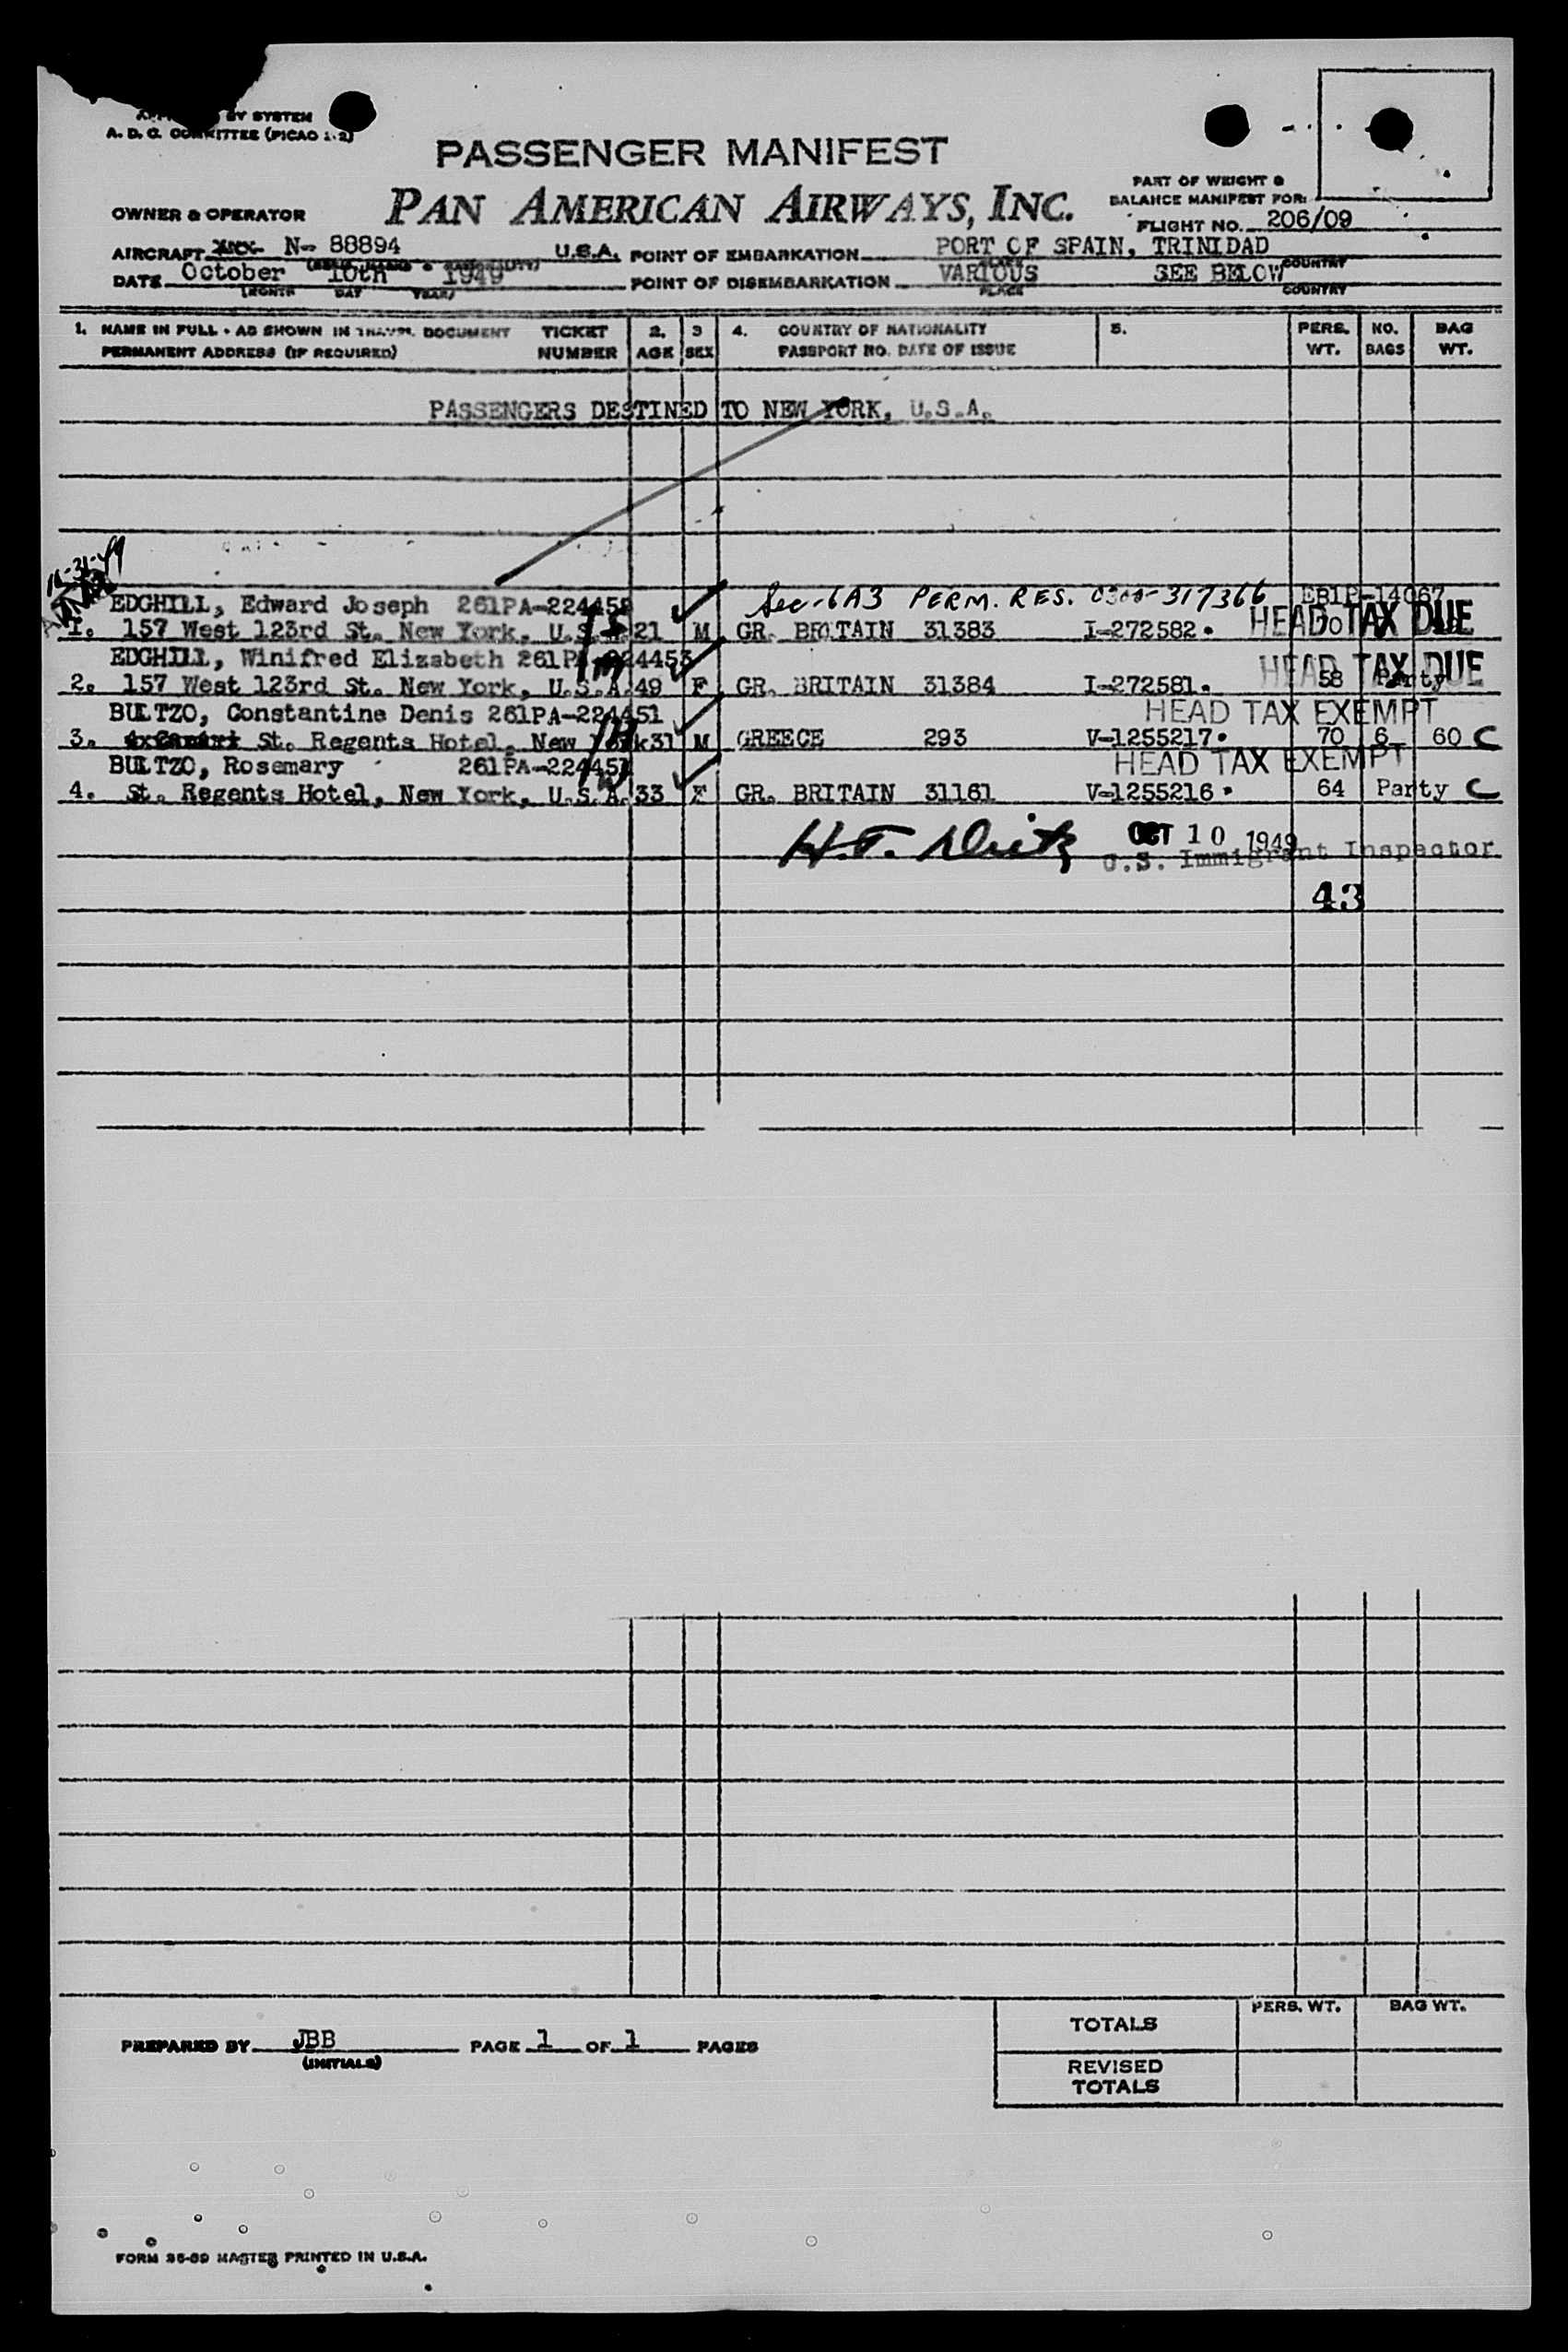 BY SYSTEM
A. D. C. COMMITTEE (PICAO 1-2)
PASSENGER MANIFEST
PAN AMERICAN AIRWAYS, INC.
PART OF WEIGHT &
BALANCE MANIFEST FOR:
FLIGHT NO. 206/09
OWNER & OPERATOR
AIRCRAFT N- 88894 U.S.A. POINT OF EMBARKATION PORT OF SPAIN, TRINIDAD
COUNTRY
DATE October 10th 1949 POINT OF DISEMBARKATION VARIOUS SEE BELOW
(MONTH DAY YEAR) PLACE COUNTRY
1. NAME IN FULL - AS SHOWN IN TRAVEL DOCUMENT TICKET 2. 3 4. COUNTRY OF NATIONALITY 5. PERS. NO. BAG
PERMANENT ADDRESS (IF REQUIRED) NUMBER AGE SEX PASSPORT NO. DATE OF ISSUE WT. BAGS WT.
PASSENGERS DESTINED TO NEW YORK, U.S.A.
Sec-6A3 PERM. RES. 0300-317366 EB1P-14067
EDGHILL, Edward Joseph 261PA-224452
1. 157 West 123rd St. New York, U.S.A. 21 M GR. BRITAIN 31383 I-272582. 70 HEAD TAX DUE
EDGHILL, Winifred Elizabeth 261PA-224453
2. 157 West 123rd St. New York, U.S.A. 49 F GR. BRITAIN 31384 I-272581. 58 Party HEAD TAX DUE
BULTZO, Constantine Denis 261PA-224451 HEAD TAX EXEMPT
3. St. Regents Hotel, New York 31 M GREECE 293 V-1255217. 70 6 60 C
BULTZO, Rosemary 261PA-224451 HEAD TAX EXEMPT
4. St. Regents Hotel, New York, U.S.A. 33 F GR. BRITAIN 31161 V-1255216. 64 Party C
OCT 10 1949
U.S. Immigrant Inspector
43
PERS. WT. BAG WT.
TOTALS
PREPARED BY JBB PAGE 1 OF 1 PAGES
(INITIALS)
REVISED
TOTALS
FORM 36-69 MASTER PRINTED IN U.S.A.